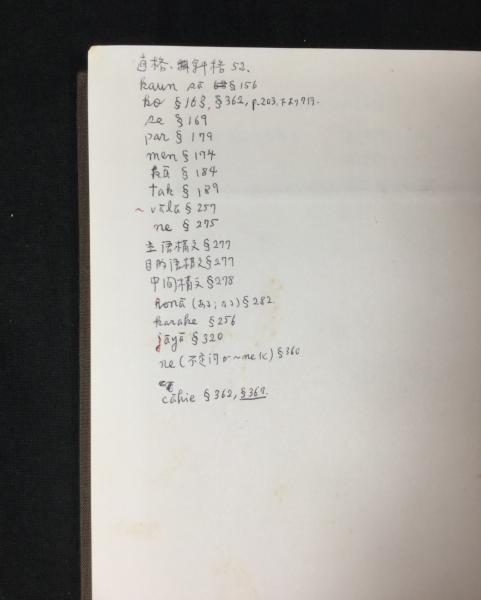 直格、斜格 52.
kaun sā § 156
ko § 163, § 362, p.203, 下より7行.
se § 169
par § 179
men § 174
kā § 184
tak § 189
~ vālā § 257
ne § 275
主语構文 § 277
目的语構文 § 277
中间構文 § 278
honā (ある; なる) § 282
karake § 256
jāyā § 320
ne (不定词の~neに) § 360
cāhie § 362, § 367.